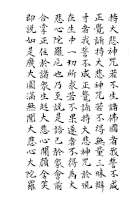 持大悲神咒若不生諸佛國者我誓不成
正覺誦持大悲神咒若不得無量三昧辯
才者我誓不成正覺誦持大悲神咒於現
在生中一切所求若不果遂者不得為大
悲心陀羅尼也乃至說是語已於眾會前
合掌正住於諸眾生起大悲心開顏含笑
即說如是廣大圓滿無閡大悲心大陀羅